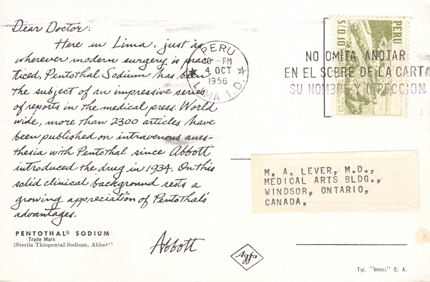 Dear Doctor:
Here in Lima, just as
wherever modern surgery is prac-
ticed, Pentothal Sodium has been
the subject of an impressive series
of reports in the medical press. World
wide, more than 2300 articles have
been published on intravenous anes-
thesia with Pentothal since Abbott
introduced the drug in 1934. On this
solid clinical background rests a
growing appreciation of Pentothal's
advantages.
PENTOTHAL® SODIUM
Trade Mark
(Sterile Thiopental Sodium, Abbott)
Abbott
PERU
PM
4 OCT
1956
LIMA 1.D.
NO OMITA ANOTAR
EN EL SOBRE DE LA CARTA
SU NOMBRE Y DIRECCION
PERU
S/o.0.10
M. A. LEVER, M.D.,
MEDICAL ARTS BLDG.,
WINDSOR, ONTARIO,
CANADA.
Agfa
Tip. "Venus" S. A.